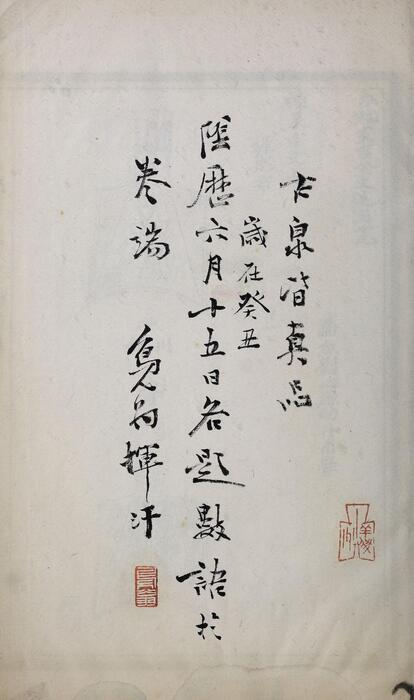 古泉皆真品
歲在癸丑
陰曆六月十五日各題數語於
卷端 鳧翁揮汗